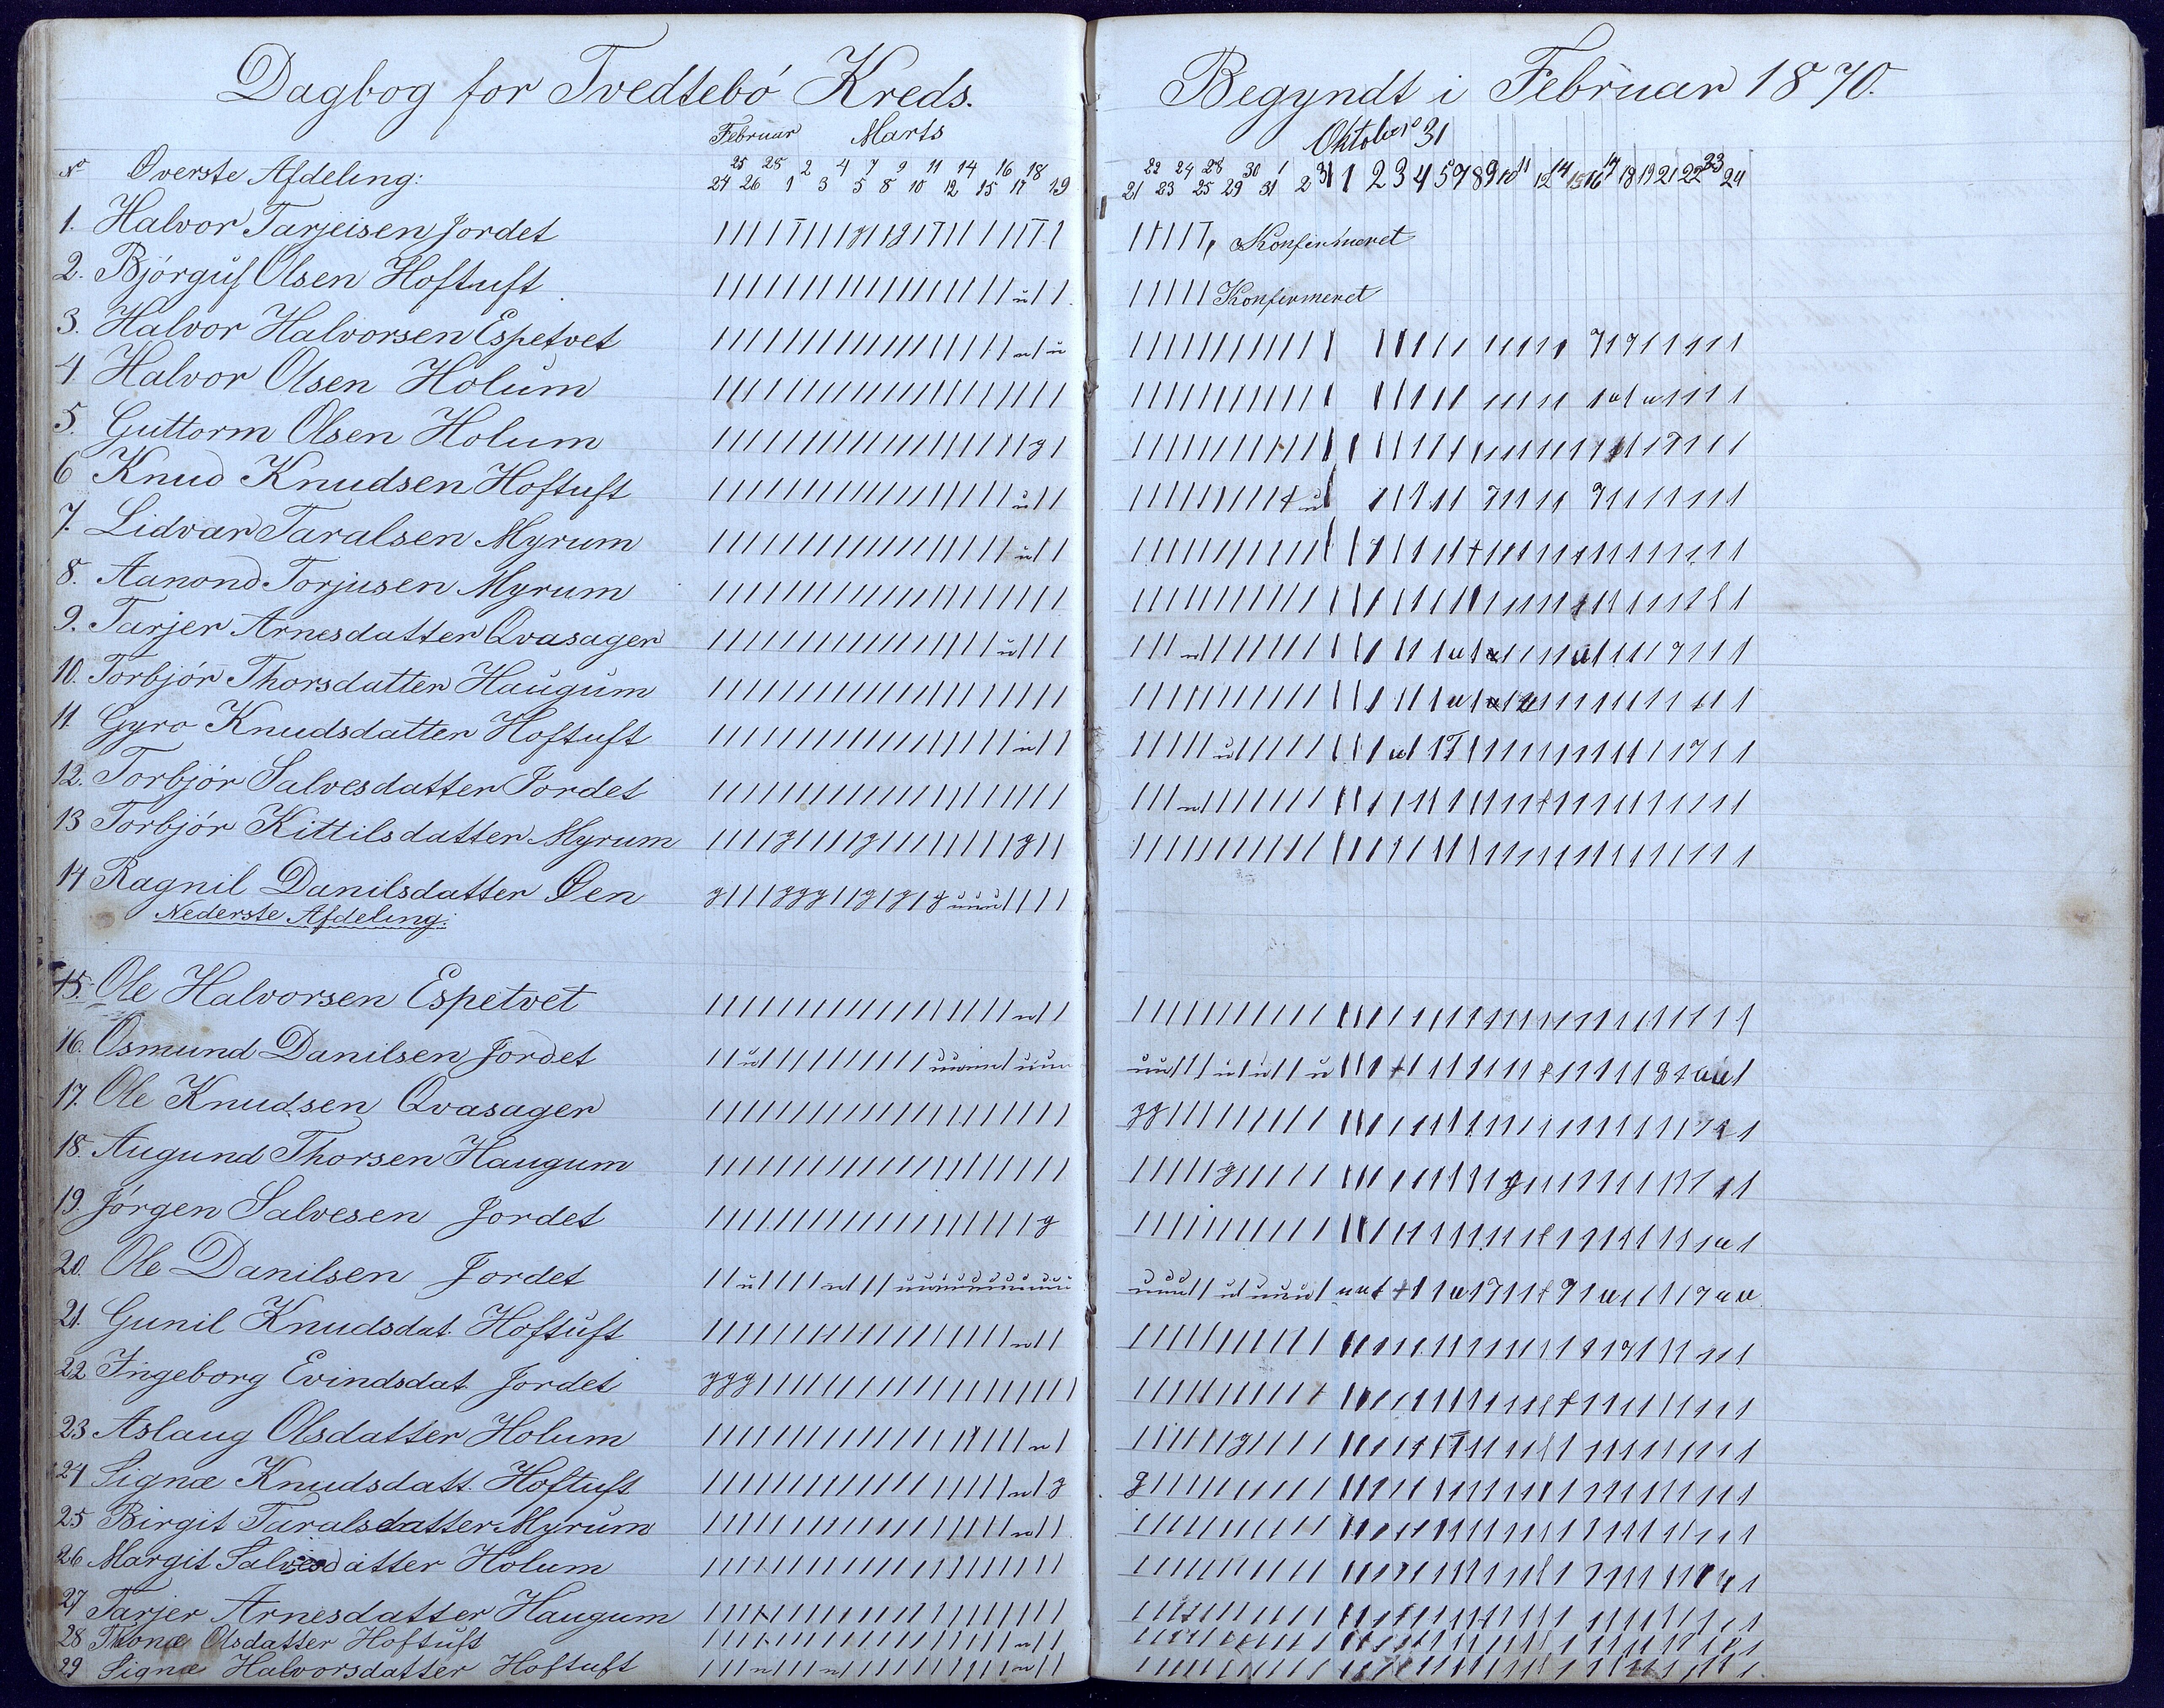 Dagbog for Tvedtebö Kreds.
Februar Marts
25 28 2 4 7 9 11 14 16 18
No Överste Afdeling: 24 26 1 3 5 8 10 12 15 17 19
1. Halvor Tarjeisen Jordet
2. Björguf Olsen Hoftuft
3. Halvor Halvorsen Espetvet
4 Halvor Olsen Holum
5. Guttorm Olsen Holum
6 Knud Knudsen Hoftuft
7. Lidvar Taralsen Myrum
8. Aanond Torjusen Myrum
9. Tarjer Arnesdatter Qvasager
10. Torbjör Thorsdatter Haugum
11. Gyro Knudsdatter Hoftuft
12. Torbjör Salvesdatter Jordet
13 Torbjör Kittilsdatter Myrum
14 Ragnil Danilsdatter Öen
Nederste Afdeling:
15. Ole Halvorsen Espetvet
16. Osmund Danilsen Jordet
17. Ole Knudsen Qvasager
18. Augund Thorsen Haugum
19. Jörgen Salvesen Jordet
20. Ole Danilsen Jordet
21. Gunil Knudsdat. Hoftuft
22 Ingeborg Evindsdat. Jordet
23 Aslaug Olsdatter Holum
24 Signæ Knudsdatt. Hoftuft
25 Birgit Taralsdatter Myrum
26 Margit Salvesdatter Holum
27 Tarjer Arnesdatter Haugum
28 Thonæ Olsdatter Hoftuft
29 Signæ Halvorsdatter Hoftuft
Begyndt i Februar 1870.
Oktober 31
22 24 28 30 1
21 23 25 29 31 2 31 1 2 3 4 5 7 8 9 10 11 12 14 15 16 17 18 19 21 22 23 24
Konfirmeret
Konfirmeret